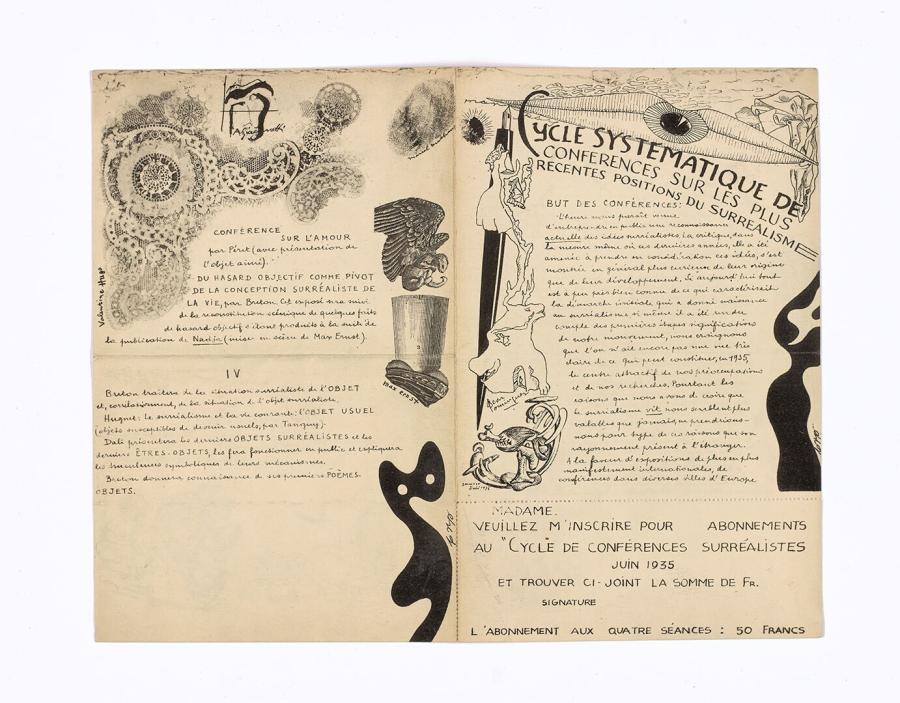 CONFÉRENCE
SUR L'AMOUR
par Péret (avec présentation de
l'objet aimé).
DU HASARD OBJECTIF COMME PIVOT
DE LA CONCEPTION SURRÉALISTE DE
LA VIE, par Breton. Cet exposé sera suivi
de la reconstitution scénique de quelques faits
de hasard objectif s'étant produits à la suite de
la publication de Nadja (mise en scène de Max Ernst).
Valentine Hugo
max ernst
IV
Breton traitera de la situation surréaliste de l'OBJET
et, corrélativement, de la situation de l'objet surréaliste.
Hugnet: Le surréalisme et la vie courante: l'OBJET USUEL
(objets susceptibles de devenir usuels, par Tanguy).
Dali présentera les derniers OBJETS SURRÉALISTES et les
derniers ÊTRES-OBJETS, les fera fonctionner en public et expliquera
les truculences symboliques de leurs mécanismes.
Breton donnera connaissance de ses premiers POÈMES-
OBJETS.
Arp
CYCLE SYSTÉMATIQUE DE
CONFÉRENCES SUR LES PLUS
RÉCENTES POSITIONS DU SURRÉALISME
BUT DES CONFÉRENCES:
L'heure nous paraît venue
d'entreprendre en public une reconnaissance
actuelle des idées surréalistes. La critique, dans
la mesure même où ces dernières années, elle a été
amenée à prendre en considération ces idées, s'est
montrée en général plus curieuse de leur origine
que de leur développement. Si aujourd'hui tout
est à peu près bien connu de ce qui caractérisait
la démarche initiale qui a donné naissance
au surréalisme si même il a été rendu
compte des premières étapes significatives
de notre mouvement, nous craignons
que l'on n'ait encore pas une vue très
claire de ce qui peut constituer, en 1935,
le centre attractif de nos préoccupations
et de nos recherches. Pourtant les
raisons que nous avons de croire que
le surréalisme vit nous semblent plus
valables que jamais, en prendrions-
nous pour type de ces raisons que son
rayonnement présent à l'étranger.
A la faveur d'expositions de plus en plus
manifestement internationales, de
conférences dans diverses villes d'Europe
Arp
MADAME.
VEUILLEZ M'INSCRIRE POUR ABONNEMENTS
AU "CYCLE DE CONFÉRENCES SURRÉALISTES
JUIN 1935
ET TROUVER CI-JOINT LA SOMME DE FR.
SIGNATURE
L'ABONNEMENT AUX QUATRE SÉANCES : 50 FRANCS